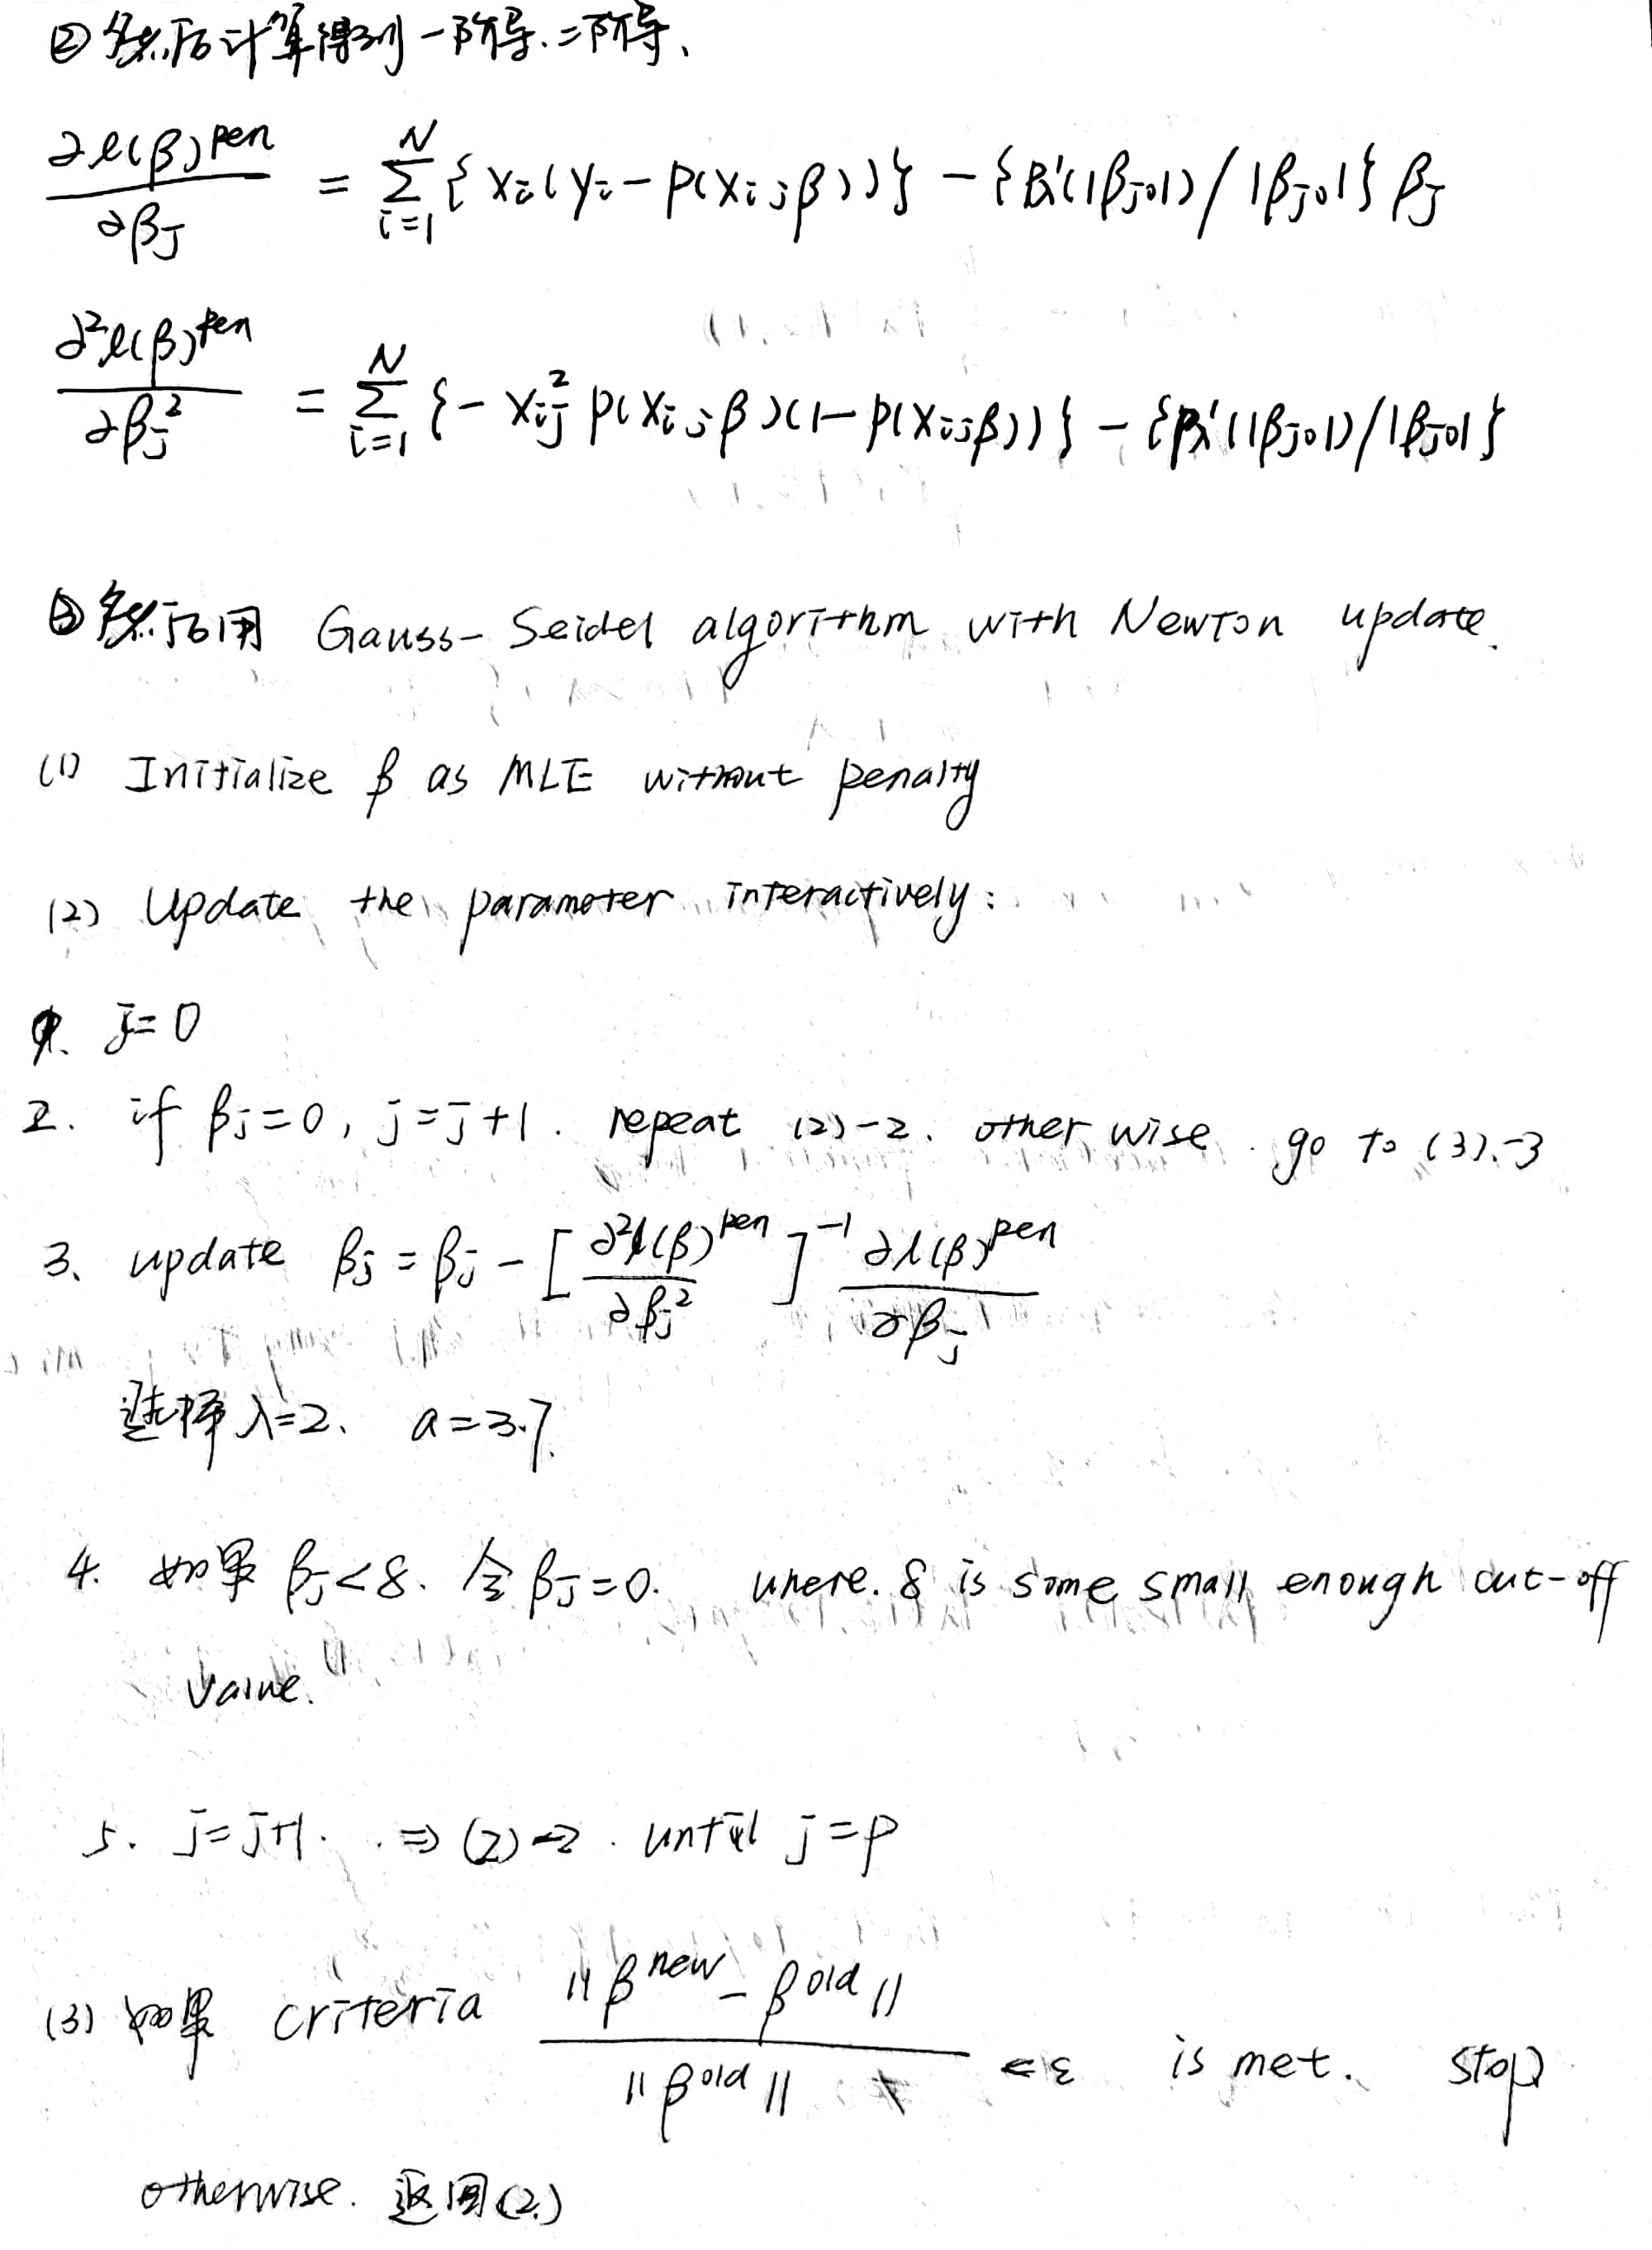 ② 然后计算得到一阶导.二阶导、
∂ℓ(β)^pen / ∂β_J = Σ_{i=1}^N { x_i (y_i - p(x_i;β)) } - { P_λ'(|β_J0|) / |β_J0| } β_J
∂²ℓ(β)^pen / ∂β_J² = Σ_{i=1}^N { - x_ij² p(x_i;β)(1-p(x_i;β)) } - { P_λ'(|β_J0|) / |β_J0| }
③ 然后用 Gauss-Seidel algorithm with Newton update.
(1) Initialize β as MLE without penalty
(2) Update the parameter interactively:
1. j=0
2. if β_j=0, j=j+1. repeat (2)-2. otherwise. go to (3).-3
3、update β_j = β_j - [ ∂²ℓ(β)^pen / ∂β_j² ]^-1 ∂ℓ(β)^pen / ∂β_j
选择 λ=2、 a=3.7.
4. 如果 β_J<δ、令 β_J=0. where. δ is some small enough cut-off
value.
5. j=j+1. ⇒ (2)-2. until j=p
(3) 如果 criteria ‖β^new - β^old‖ / ‖β^old‖ < ε is met. stop
otherwise. 返回(2.)